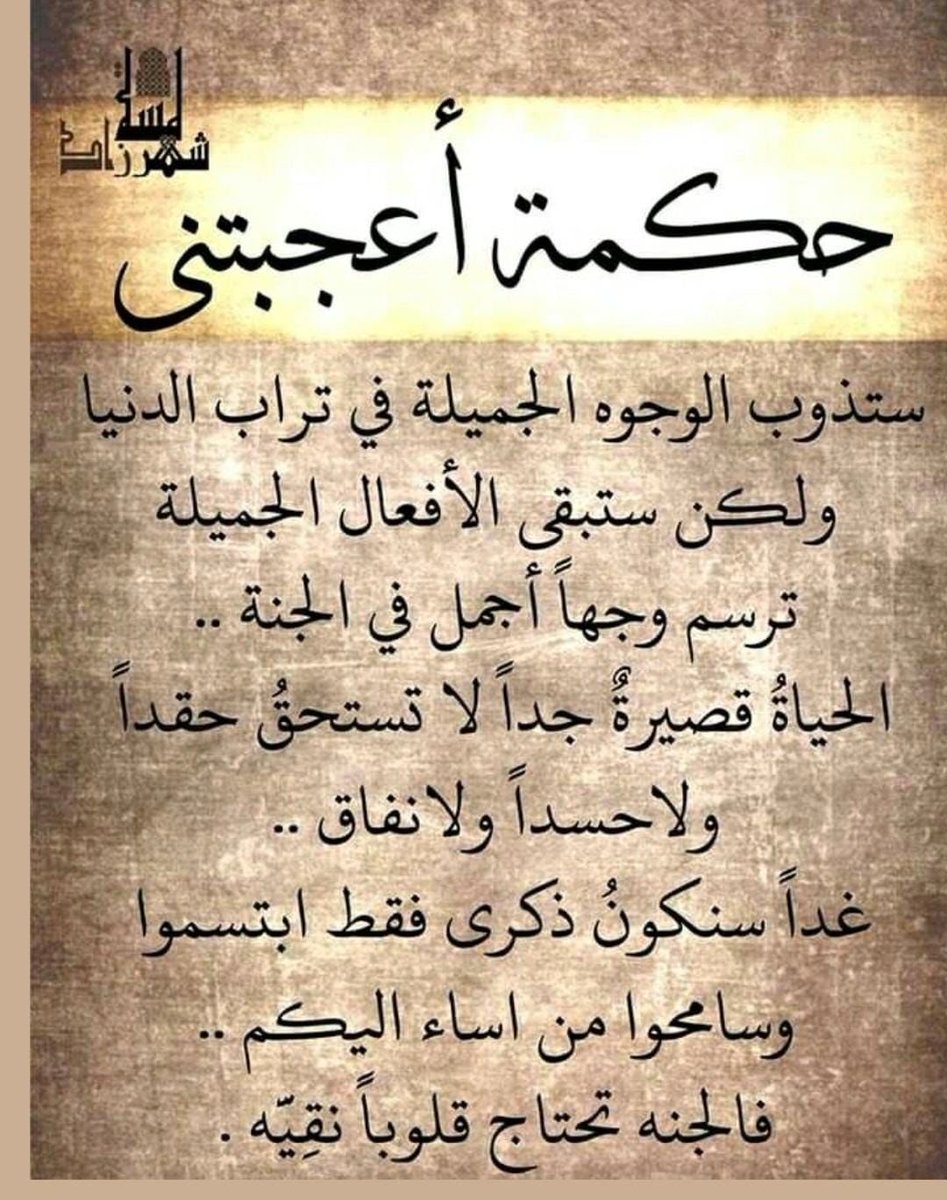 لمسة
شهرزاد
حكمة أعجبتنى
ستذوب الوجوه الجميلة في تراب الدنيا
ولكن ستبقى الأفعال الجميلة
ترسم وجهاً أجمل في الجنة ..
الحياةُ قصيرةٌ جداً لا تستحقُ حقداً
ولاحسداً ولانفاق ..
غداً سنكونُ ذكرى فقط ابتسموا
وسامحوا من اساء اليكم ..
فالجنه تحتاج قلوباً نقِيّه .